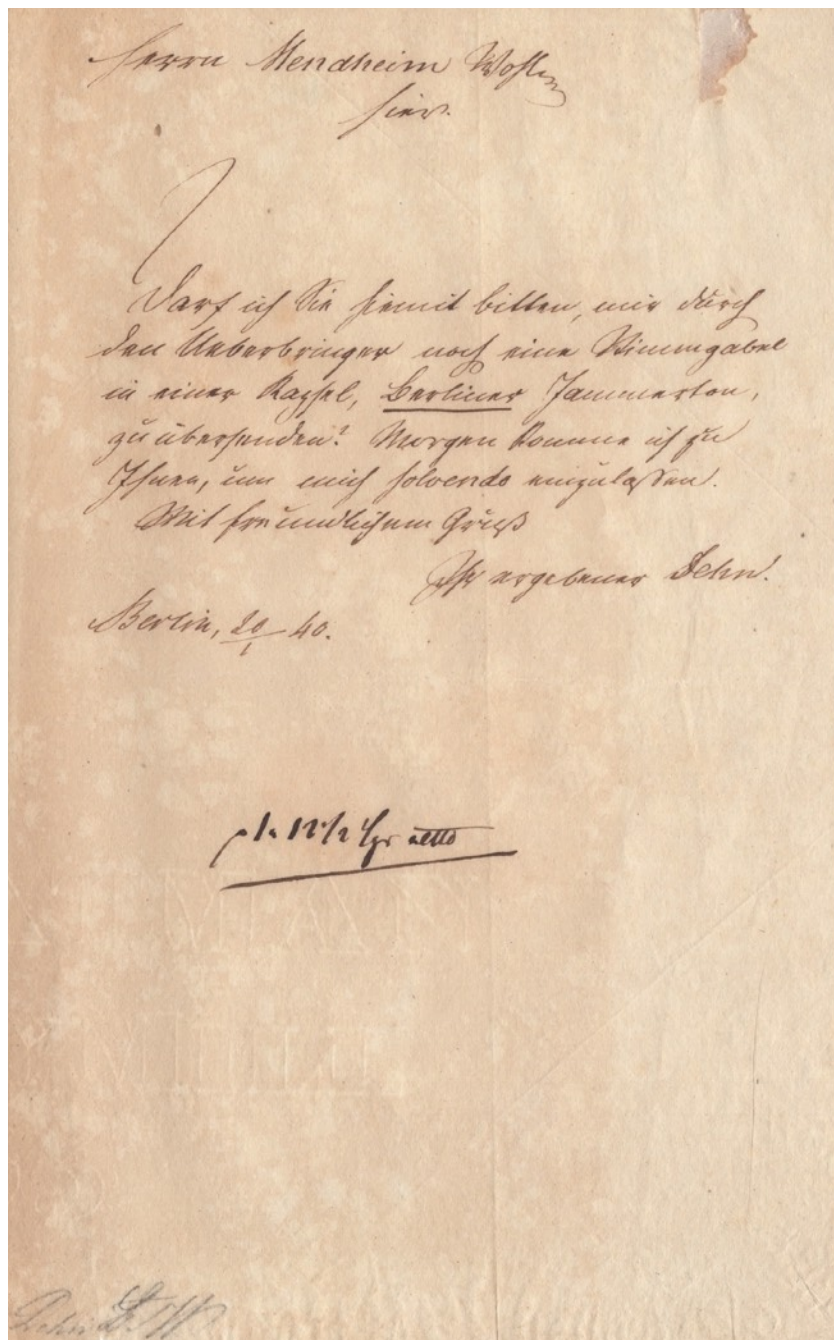 Herrn Mendheim Wohlg
hier.
Darf ich Sie hiemit bitten, mir durch
den Ueberbringer noch eine Stimmgabel
in einer Kapsel, Berliner Jammerton,
zu übersenden? Morgen komme ich zu
Ihnen, um mich solvendo einzulassen.
Mit freundlichem Gruß
Ihr ergebener Dehn.
Berlin, 20/1 40.
12 1/2 Sgr netto
Dehn S. W.